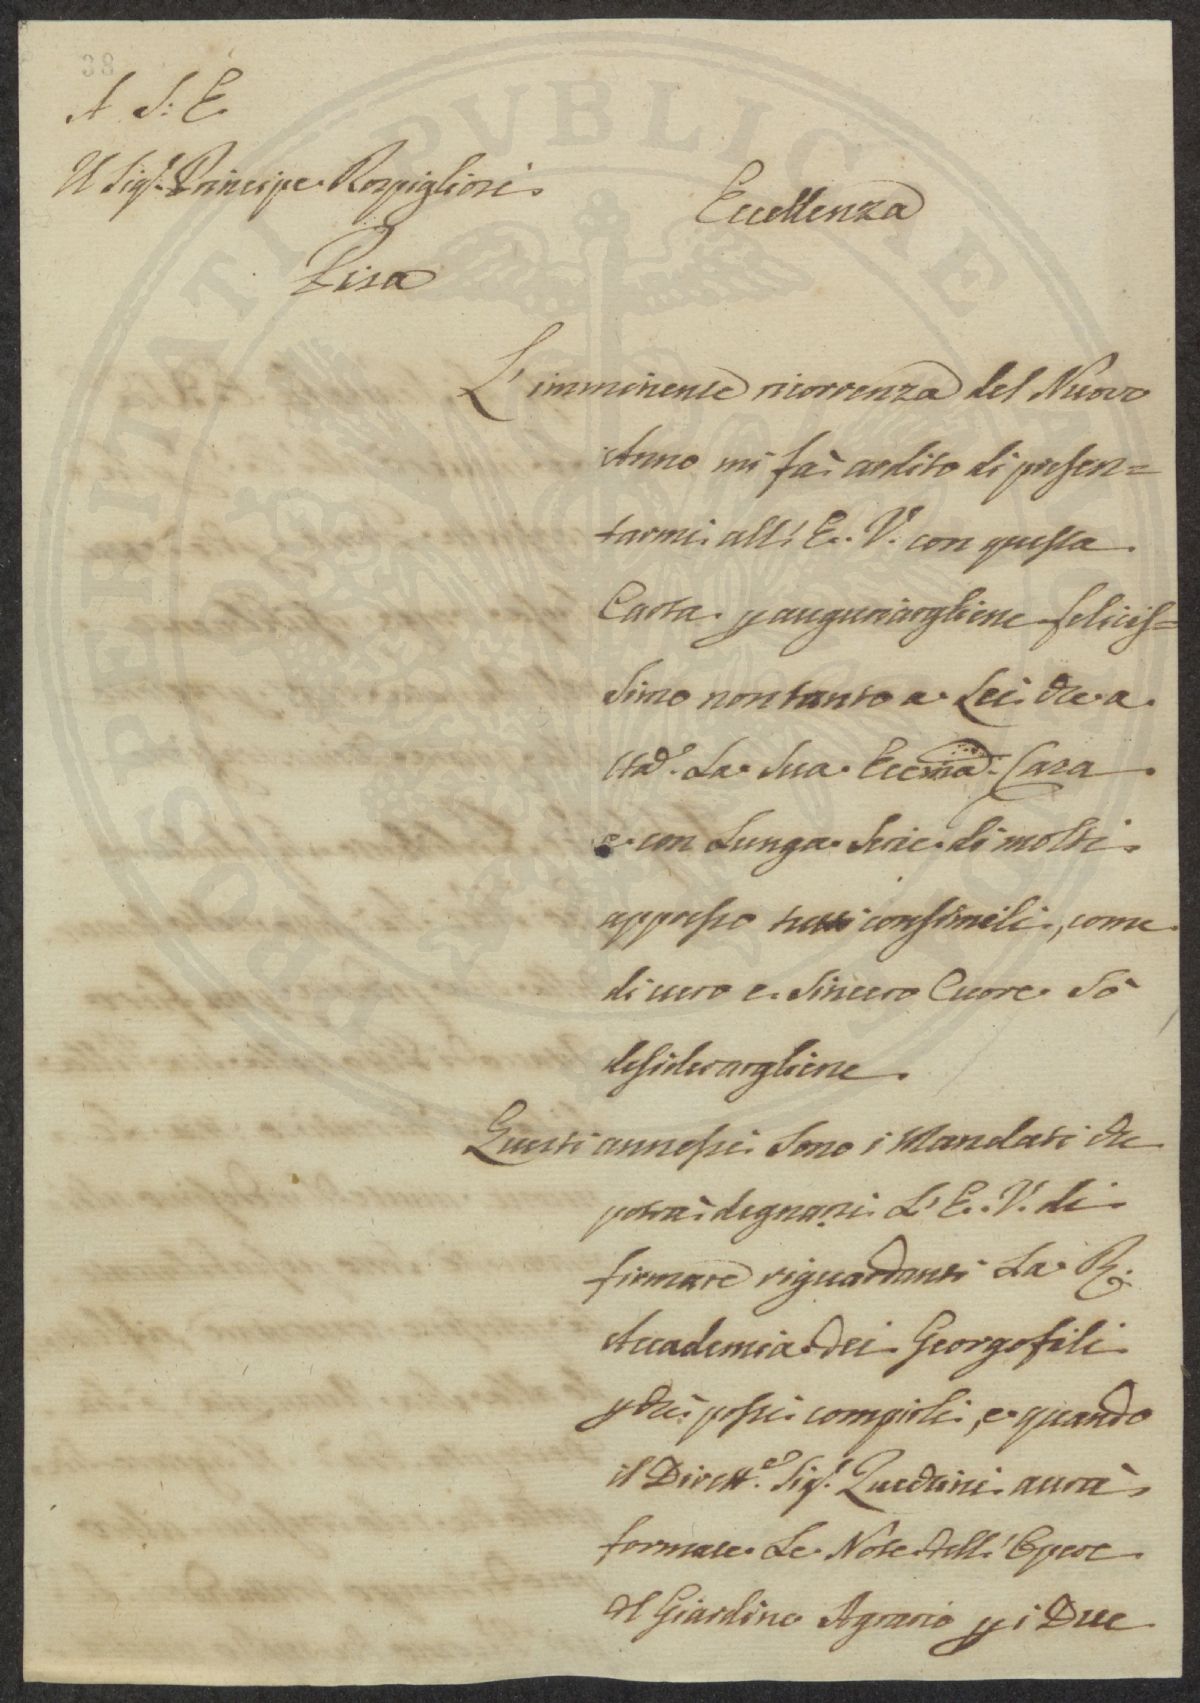 38
A S: E.
Il Sigr. Principe Rospigliosi
Pisa
Eccellenza
L'imminente ricorrenza del Nuovo
Anno mi fà ardito di presen=
tarmi all'E. V. con questa
Carta p augurargliene felicis=
simo non tanto a Lei che a
tta. La Sua Eccma. Casa
e con Lunga Serie di molti
appresso tutti consimili, come
di vero e Sincero Cuore Sò
desiderargliene.
Questi annessi Sono i Mandati che
potrà degnarsi L'E. V. di
firmare riguardanti La R.
Accademia dei Georgofili
p che possi compirli, e quando
il Dirette. Sigr. Zucchini avrà
formate Le Note dell'Opere
del Giardino Agrario p i Due
PROSPERITATI PVBLICAE AVGENDAE